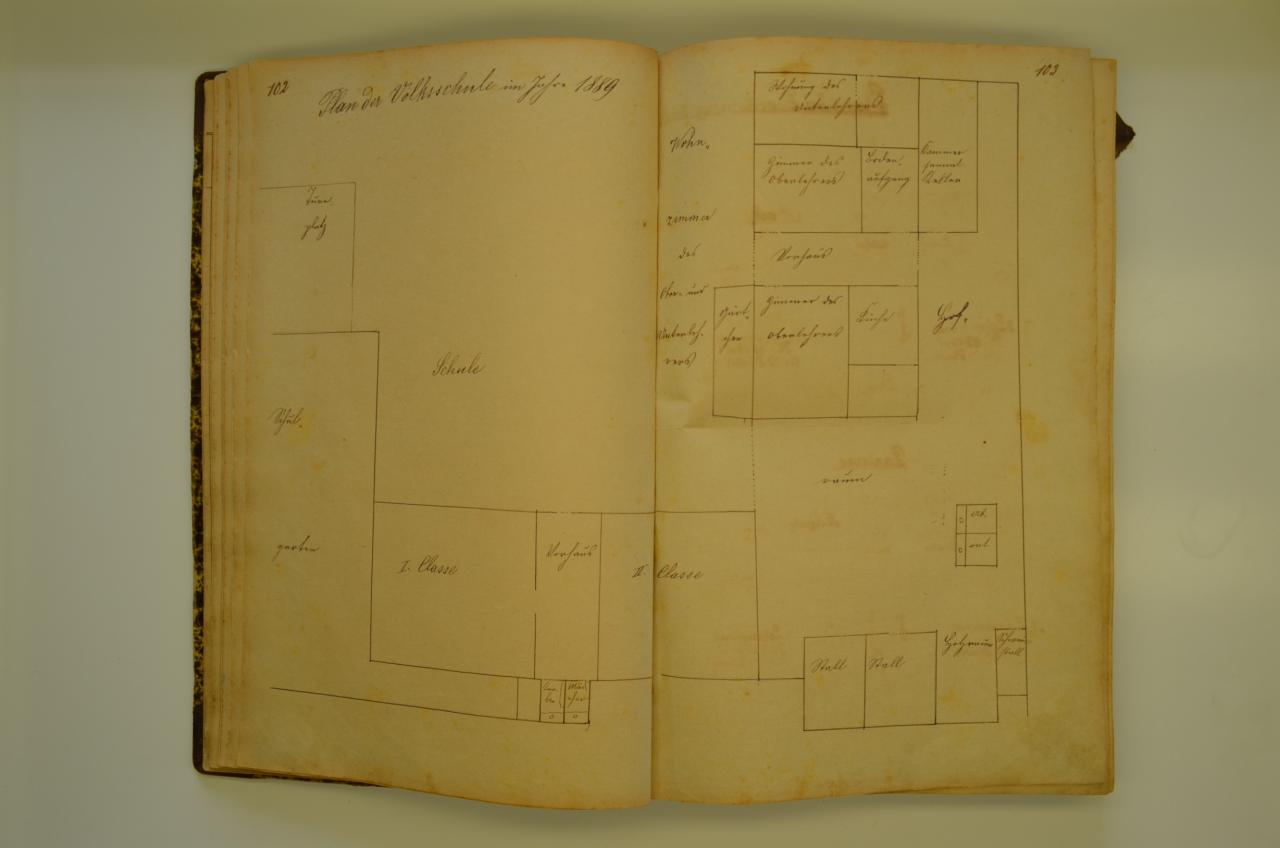 102
Plan der Volksschule im Jahre 1889
Turn-
platz
Schule
Schul-
garten
I. Classe
Vorhaus
II. Classe
Kna-
ben
Mäd-
chen
0
0
103
Wohnung des
Unterlehrers
Wohn-
zimmer
des
Ober- und
Unterleh-
rers
Zimmer des
Oberlehrers
Boden-
aufgang
Kammer
sammt
Keller
Vorhaus
Gärt-
chen
Zimmer des
Oberlehrers
Küche
Hof-
raum
0
0
Stall
Stall
Holzraum
Schwein-
stall